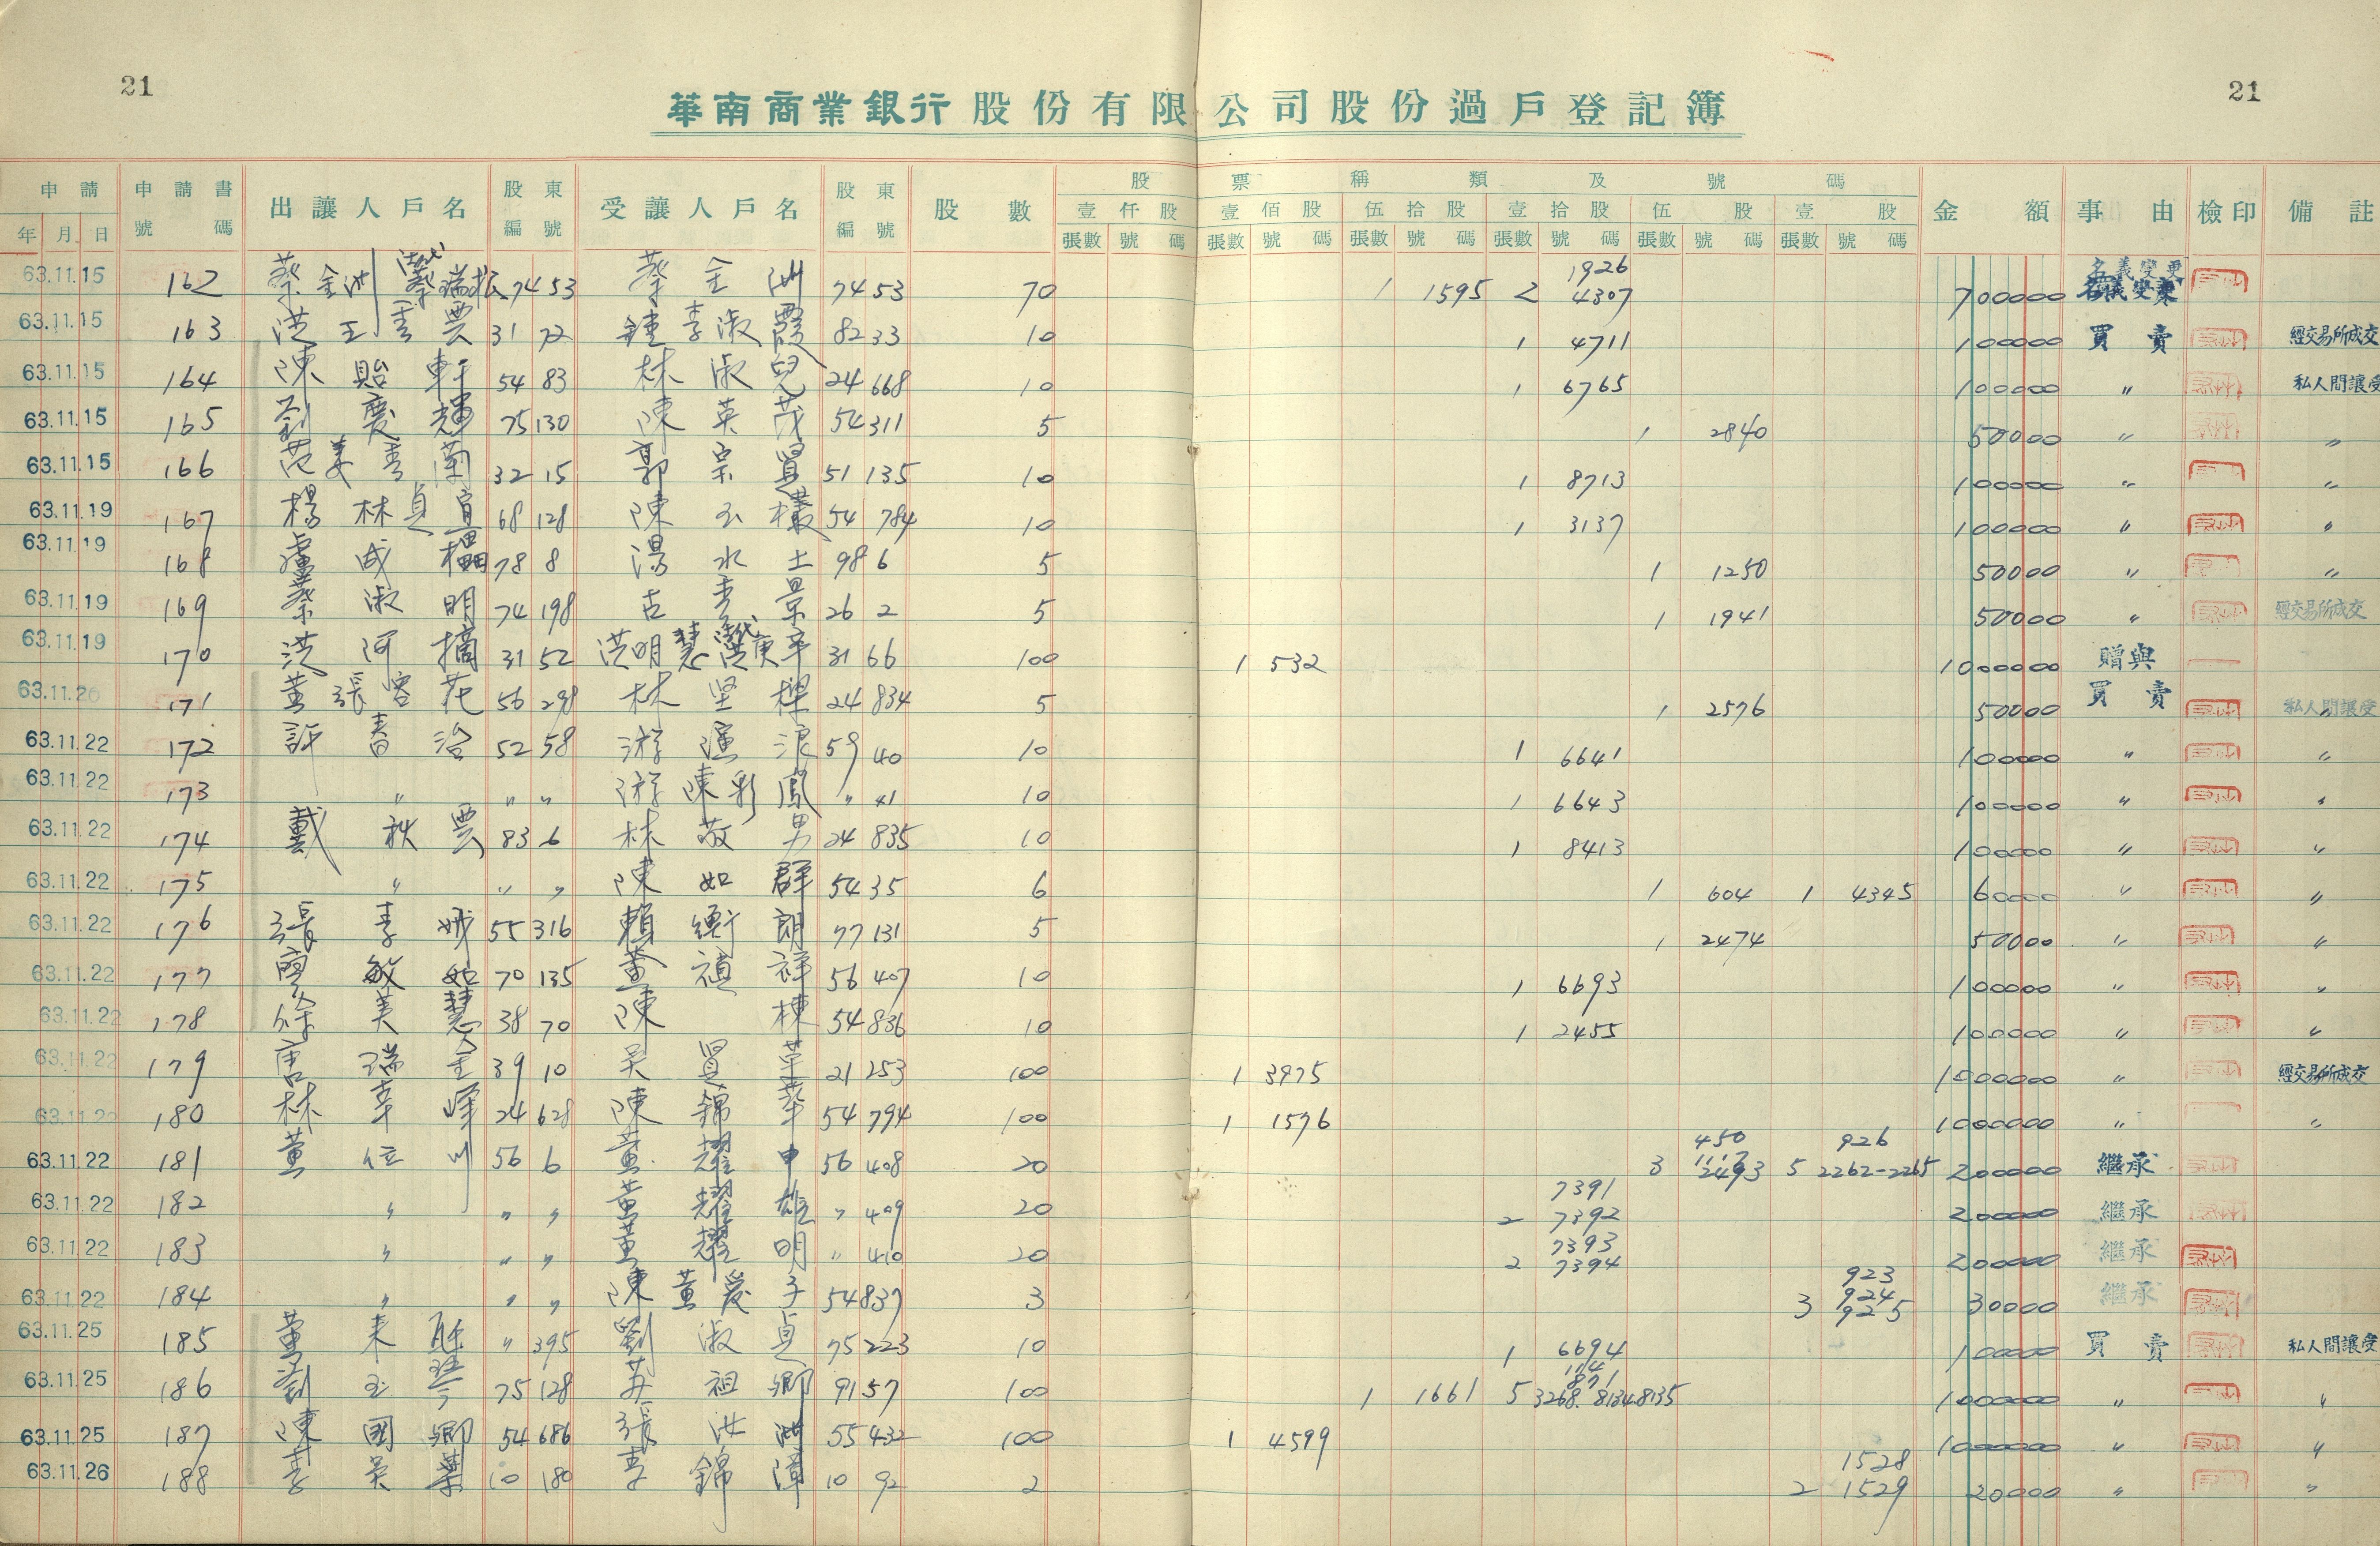 21
21
華南商業銀行股份有限公司股份過戶登記簿
申請 年 月 日 申請書號碼 出讓人戶名 股東編號 受讓人戶名 股東編號 股數 股票稱類及號碼 金額 事由 檢印 備註
壹仟股 壹佰股 伍拾股 壹拾股 伍股 壹股
張數 號碼 張數 號碼 張數 號碼 張數 號碼 張數 號碼 張數 號碼
63.11.15 162 蔡金洲 蔡瑞松 74 53 蔡金洲 74 53 70 1 1595 2 1926 4307 700000 名義變更
63.11.15 163 洪王雲 31 72 鍾李淑霞 82 33 10 1 4711 100000 買賣 經交易所成交
63.11.15 164 陳貽軒 54 83 林淑兒 24 668 10 1 6765 100000 〃 私人間讓受
63.11.15 165 劉慶輝 75 130 陳英茂 54 311 5 1 2840 50000 〃 〃
63.11.15 166 范姜秀蘭 32 15 郭宗賢 51 135 10 1 8713 100000 〃 〃
63.11.19 167 楊林貞 68 128 陳玉 54 784 10 1 3137 100000 〃 〃
63.11.19 168 盧成 78 8 湯水土 98 6 5 1 1250 50000 〃 〃
63.11.19 169 蔡淑明 74 198 古秀景 26 2 5 1 1941 50000 〃 經交易所成交
63.11.19 170 洪阿摘 31 52 洪明慧 洪庚辛 31 66 100 1 532 1000000 贈與
63.11.20 171 黃張容花 56 298 林坚樑 24 834 5 1 2576 50000 買賣 私人間讓受
63.11.22 172 許春治 52 58 游浪 59 40 10 1 6641 100000 〃 〃
63.11.22 173 〃 〃 〃 游陳彩鳳 〃 41 10 1 6643 100000 〃 〃
63.11.22 174 戴秋雲 83 6 林敬男 24 835 10 1 8413 100000 〃 〃
63.11.22 175 〃 〃 〃 陳如群 54 35 6 1 604 1 4345 60000 〃 〃
63.11.22 176 張李娥 55 316 賴衡朗 77 131 5 1 2474 50000 〃 〃
63.11.22 177 廖敏如 70 135 黃禎祥 56 407 10 1 6693 100000 〃 〃
63.11.22 178 徐美慧 38 70 陳棟 54 836 10 1 2455 100000 〃 〃
63.11.22 179 唐瑞全 39 10 吳 21 253 100 1 3975 1000000 〃 經交易所成交
63.11.22 180 林幸峰 24 628 陳錦華 54 794 100 1 1576 1000000 〃 〃
63.11.22 181 黃位川 56 6 黃耀申 56 408 20 3 450 2493 5 926 2262-2265 200000 繼承
63.11.22 182 〃 〃 〃 黃耀雄 〃 409 20 2 7391 7392 200000 繼承
63.11.22 183 〃 〃 〃 黃耀明 〃 410 20 2 7393 7394 200000 繼承
63.11.22 184 〃 〃 〃 陳黃愛子 54 837 3 3 923 924 925 30000 繼承
63.11.25 185 黃來 〃 395 劉淑貞 75 223 10 1 6694 100000 買賣 私人間讓受
63.11.25 186 劉玉琴 75 128 祖卿 91 57 100 1 1661 5 114 871 3268. 8134.8135 1000000 〃 〃
63.11.25 187 陳國卿 54 686 張洪洲 55 432 100 1 4599 1000000 〃 〃
63.11.26 188 李吳葉 10 180 李錦漳 10 92 2 2 1528 1529 20000 〃 〃